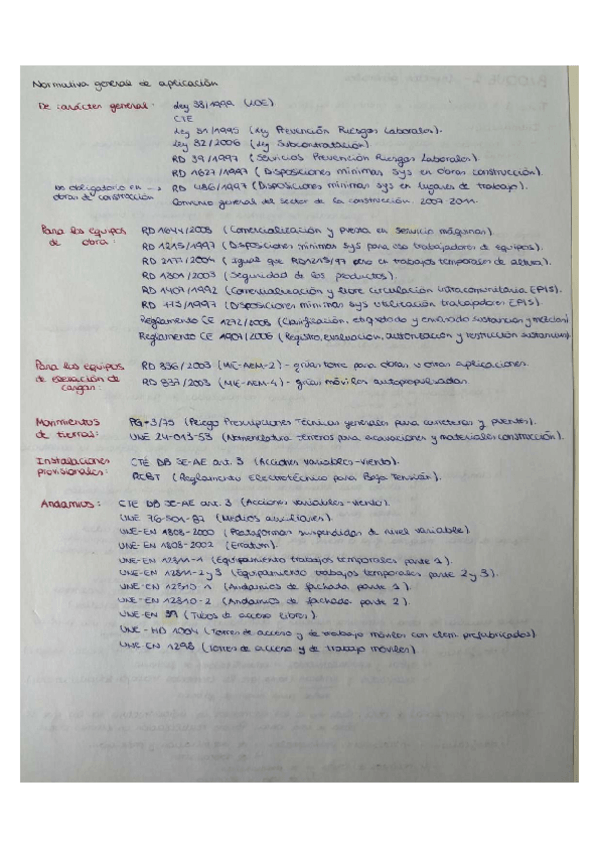 Normativa general de aplicación
De carácter general: Ley 38/1999 (LOE)
CTE
Ley 31/1995 (Ley Prevención Riesgos Laborales).
Ley 32/2006 (Ley Subcontratación)
RD 39/1997 (Servicios Prevención Riesgos Laborales).
RD 1627/1997 (Disposiciones mínimas SyS en obras construcción).
No obligatorio en → RD 486/1997 (Disposiciones mínimas SyS en lugares de trabajo).
obras de construcción Convenio general del sector de la construcción. 2007-2011.
Para los equipos RD 1644/2008 (Comercialización y puesta en servicio máquinas).
de obra: RD 1215/1997 (Disposiciones mínimas SyS para uso trabajadores de equipos).
RD 2177/2004 (Igual que RD1215/97 pero en trabajos temporales de altura).
RD 1801/2003 (Seguridad de los productos).
RD 1407/1992 (Comercialización y libre circulación intracomunitaria EPIS).
RD 773/1997 (Disposiciones mínimas SyS utilización trabajadores EPIS).
Reglamento CE 1272/2008 (Clasificación, etiquetado y envasado sustancias y mezclas)
Reglamento CE 1907/2006 (Registro, evaluación, autorización y restricción sustancias)
Para los equipos RD 836/2003 (MIE-AEM-2) - grúas torre para obras u otras aplicaciones.
de elevación de RD 837/2003 (MIE-AEM-4) - grúas móviles autopropulsadas.
cargas:
Movimientos PG-3/75 (Pliego Prescripciones Técnicas generales para carreteras y puentes).
de tierras: UNE 24-013-53 (Nomenclatura terrenos para excavaciones y materiales construcción).
Instalaciones CTE DB SE-AE art. 3 (Acciones variables-viento).
provisionales: REBT (Reglamento Electrotécnico para Baja Tensión).
Andamios: CTE DB SE-AE art. 3 (Acciones variables-viento).
UNE 76-501-87 (Medios auxiliares).
UNE-EN 1808-2000 (Plataformas suspendidas de nivel variable).
UNE-EN 1808-2002 (Erratum).
UNE-EN 12811-1 (Equipamiento trabajos temporales parte 1).
UNE-EN 12811-2 y 3 (Equipamiento trabajos temporales parte 2 y 3).
UNE-EN 12810-1 (Andamios de fachada parte 1).
UNE-EN 12810-2 (Andamios de fachada parte 2).
UNE-EN 39 (Tubos de acero libres).
UNE-HD 1004 (Torres de acceso y de trabajo móviles con elem. prefabricados)
UNE-EN 1298 (Torres de acceso y de trabajo móviles).